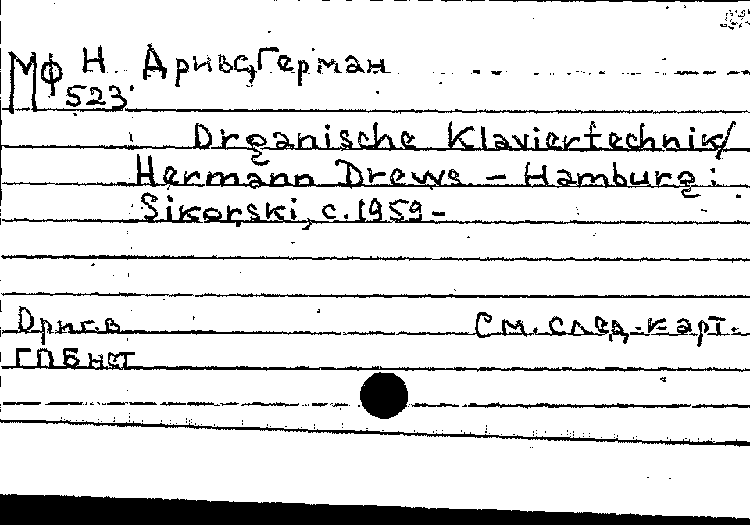 МФ Н Дривс, Герман
523
Organische Klaviertechnik/
Hermann Drews - Hamburg:
Sikorski, c.1959-
Ориг. в См. след. карт.
ГПБ нет